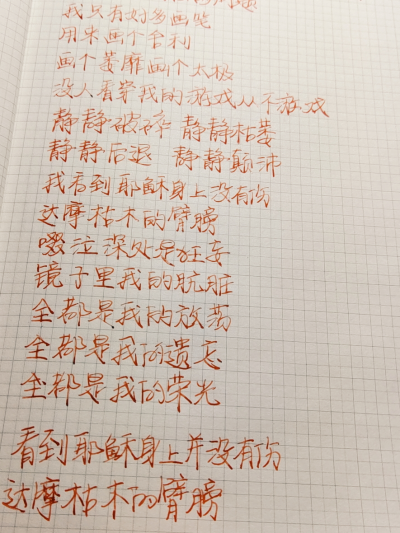 问题
我只有好多画笔
用来画个舍利
画个萎靡画个太极
没人看穿我的游戏从不游戏
静静破碎 静静枯萎
静静后退 静静颠沛
我看到耶稣身上没有伤
达摩枯木的臂膀
啜泣深处是狂妄
镜子里我的肮脏
全都是我的放荡
全都是我的遗忘
全都是我的荣光
看到耶稣身上并没有伤
达摩枯木的臂膀